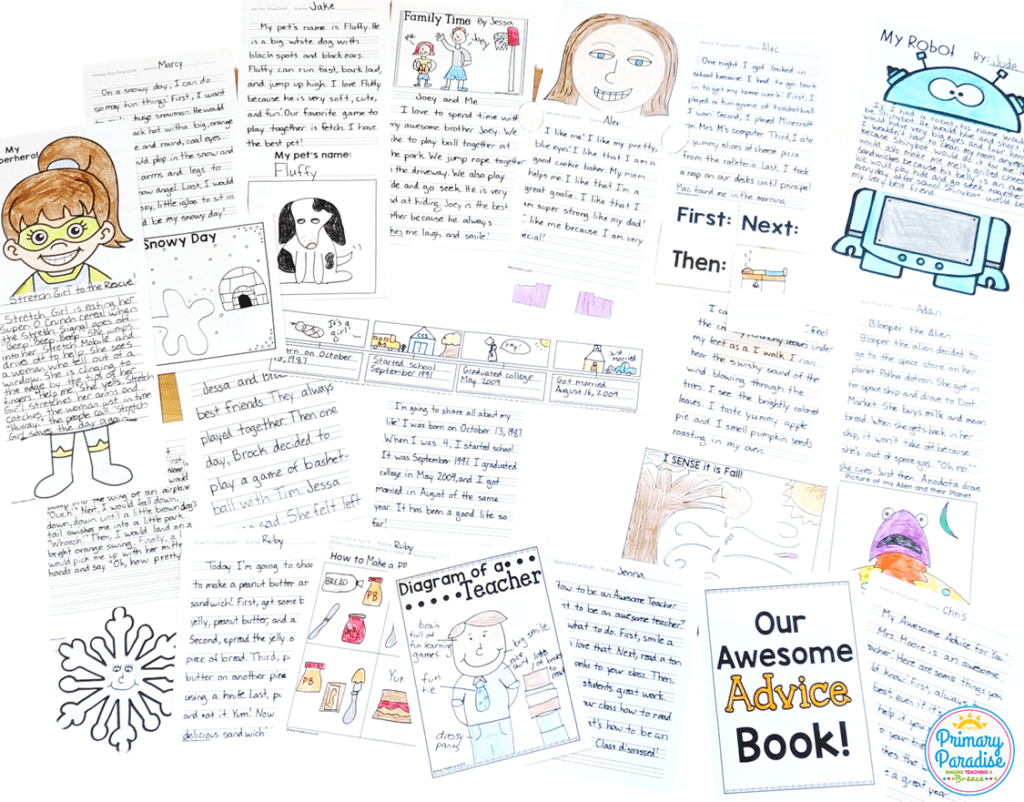 Jake
My pet's name is Fluffy. He
is a big white dog with
black spots and black ears.
Fluffy can run fast, bark loud,
and jump up high. I love Fluffy
because he is very soft, cute,
and fun! Our favorite game to
play together is fetch. I have
the best pet!
My pet's name:
Fluffy
Marcy
On a snowy day, I can do
so may fun things. First, I want
huge snowman. He would
hat with a big, orange
and round, coal eyes
plop in the snow and
arms and legs to
snow angel. Last, I would
y, little igloo to sit in
d be my snowy day!
Snowy Day
Family Time By Jessa
me
Joey
Joey and Me
I love to spend time with
my awesome brother Joey. We
to play ball together at
the park. We jump rope together
the driveway. We also play
and go seek. He is very
at hiding. Joey is the best
other because he always
me laugh and smile!
Alex
I like me! I like my pretty,
blue eyes! I like that I am a
good cookie baker. My mom
helps me. I like that I'm a
great goalie. I like that I
am super strong like my dad!
I like me because I am very
special!
Alec
One night I got locked in
school because I had to go back
in to get my home work! First, I
played a fun game of trashball.
I won. Second, I played Minecraft
on Mrs. M's computer. Third, I ate
yummy slices of cheese pizza
from the cafeteria. Last, I took
a nap on our desks until principal
Mac found me in the morning.
First: Next:
Then:
My Robot
By: Jude
If I had a robot his name would
be Shinybot. He would be blue and
My
Stretch Girl to the Rescue!
Stretch Girl is eating her
Super O Crunch cereal when
the Stretch Signal goes off.
Beep, Beep, Beep, she jumps
into her Stretch Mobile and
drives off to help. She sees
a woman who is out of a
window. She is clinging to
the edge by the tips of her
fingers. Help me! She yells. Stretch
Girl stretches her arms and
catches the woman just in time
"Hurray," the people call "Stretch
Girl saves the day again."
It's a
girl!
Yay!
Just
Married
born on October
13, 1987
Started school
September 1991
Graduated college
May 2009
Got married
August 16, 2009
I'm going to share all about my
life! I was born on October 13, 1987.
When I was 4, I started school.
It was September 1991. I graduated
college in May 2009, and I got
married in August of the same
year. It has been a good life so
far!
Jessa and
best friends. They always
played together. Then one
day, Brock decided to
play a game of basket-
ball with Tim. Jessa
sad. She felt left
feel
leaves under
my feet as I walk. I can
hear the swishy sound of the
wind blowing through the
trees. I see the brightly colored
leaves. I taste yummy apple
pie and I smell pumpkin seeds
roasting in my oven.
I SENSE it is Fall!
Adain
Blooper the Alien
Blooper the alien decided to
go to the space store on her
planet Polka dotron. She got in
her space ship and drove to Dot
Market. She buys milk and moon
bread. When she gets back in her
ship, it won't take off because
she's out of space gas. "Oh no!"
she cries. Just then, Anodota drove
Picture of my Alien and their Planet
the wing of an airplane.
"Ouch." Next, I would fall down,
down, down until a little brown dog's
tail swishes me into a little park.
"Whoosh." Then, I would land on a
bright orange swing. Finally, a
would pick me up with her mitten
hands and say "Oh, how pretty
Ruby
Today I'm going to share
to make a peanut butter and
sandwich! First, get some b
jelly, peanut butter, and a
Second, spread the jelly o
piece of bread. Third, p
butter on another piece
using a knife. Last, p
and eat it. Yum! Now
delicious sandwich!
Ruby
How to Make a
BREAD
PB
JELLY
PB
Diagram of a
Teacher
brain
full of
fun learning
games
big smile
fun
tie
dressy
pants
Jenna
How to be an Awesome Teacher
to be an awesome teacher?
what to do. First, smile a
love that. Next, read a ton
books to your class. Then,
students great work.
your class how to read
it's how to be an
Class dismissed!
Our
Awesome
Advice
Book!
Chris
My Awesome Advice for You
Mrs. Moore is an awesome
teacher! Here are some things you
know! First always
Primary
Paradise
MAKING TEACHING A
Breeze